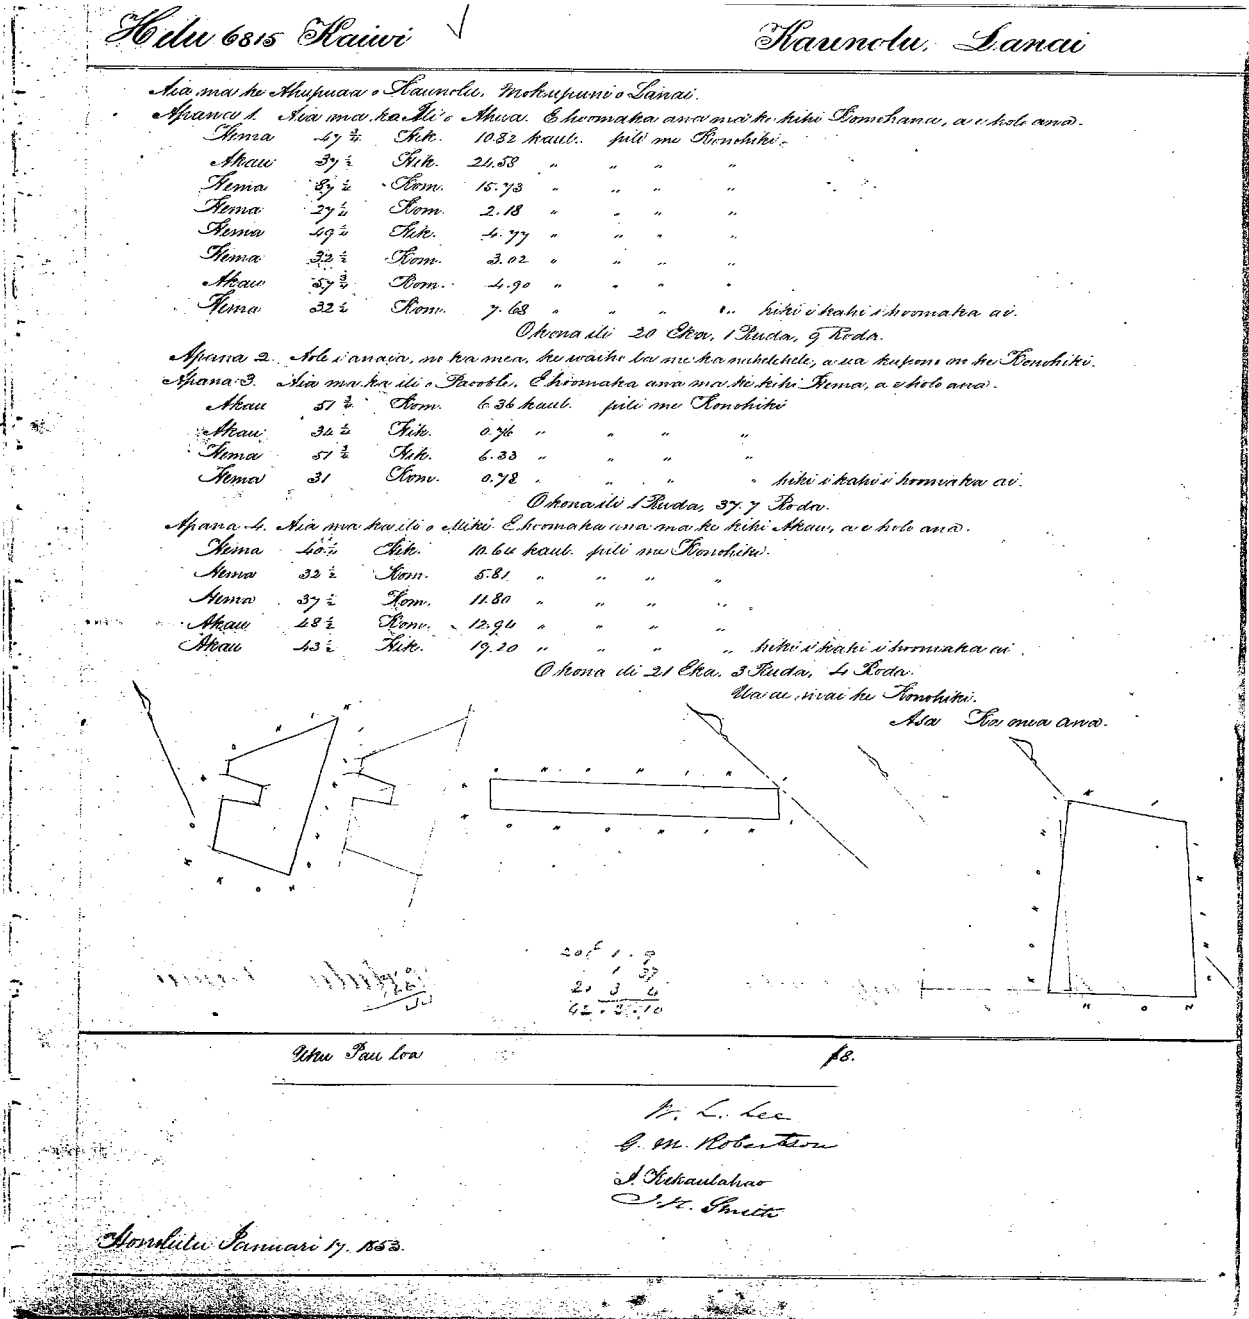 Helu 6815 Kaiwi Kaunolu, Lanai
Aia ma ke Ahupuaa o Kaunolu, Mokupuni o Lanai.
Apana 1. Aia ma ka Ili o Ahua. E hoomaka ana ma ke kihi Komohana, a e holo ana.
Hema 47 Hik. 10.82 kaul. pili me Konohiki.
Akau 37 ½ Hik. 24.58 " " " "
Hema Kom. 15.73 " " " "
Hema Kom. 2.18 " " " "
Hema Hik. 4.77 " " " "
Hema 32 ½ Kom. 3.02 " " " "
Akau 57 ¾ Kom. 4.90 " " " "
Hema 32 ½ Kom. 7.68 " " " " hiki i kahi i hoomaka ai.
O kona ili 20 Eka, 1 Ruda, 9 Roda.
Apana 2. Aole i anaia, no ka mea, he waiho la me ka nahelehele, a ua kupono no ke Konohiki.
Apana 3. Aia ma ka ili o E hoomaka ana ma ke kihi Hema, a e holo ana.
Akau 51 Kom. 6.36 kaul. pili me Konohiki
Akau Hik. 0.76 " " " "
Hema 51 Hik. 6.33 " " " "
Hema 31 Kom. 0.78 " " " " hiki i kahi i hoomaka ai.
O kona ili 1 Ruda, 37.7 Roda.
Apana 4. Aia ma ka ili o Miki. E hoomaka ana ma ke kihi Akau, a e holo ana.
Hema Hik. 10.64 kaul. pili me Konohiki.
Hema 32 ½ Kom. 5.81 " " " "
Hema 37 ½ Kom. 11.80 " " " "
Akau 48 ½ Kom. 12.94 " " " "
Akau 43 ½ Hik. 19.20 " " " " hiki i kahi i hoomaka ai.
O kona ili 21 Eka, 3 Ruda, 4 Roda.
Ua ae mai ke Konohiki.
Asa Ka mea ana.
K O N O H I K I
K O N O H I K I
K O N O H I K I
K O N O H I K I
20 1 . 9
1 37
21 3 4
42 . 2 . 10
Uku Pau loa $8.
W. L. Lee
G. M. Robertson
J. Kekaulahao
J. H. Smith
Honolulu Januari 17. 1853.